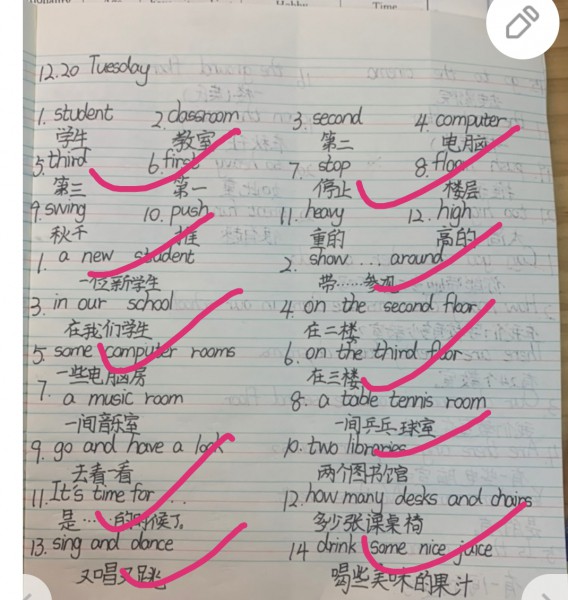 Hobby Time
12.20 Tuesday
1. student 2. classroom 3. second 4. computer
学生 教室 第二 电脑
5. third 6. first 7. stop 8. floor
第三 第一 停止 楼层
9. swing 10. push 11. heavy 12. high
秋千 推 重的 高的
1. a new student 2. show ... around
一位新学生 带……参观
3. in our school 4. on the second floor
在我们学生 在二楼
5. some computer rooms 6. on the third floor
一些电脑房 在三楼
7. a music room 8. a table tennis room
一间音乐室 一间乒乓球室
9. go and have a look 10. two libraries
去看一看 两个图书馆
11. It's time for ... 12. how many desks and chairs
是……的时候了 多少张课桌椅
13. sing and dance 14 drink some nice juice
又唱又跳 喝些美味的果汁